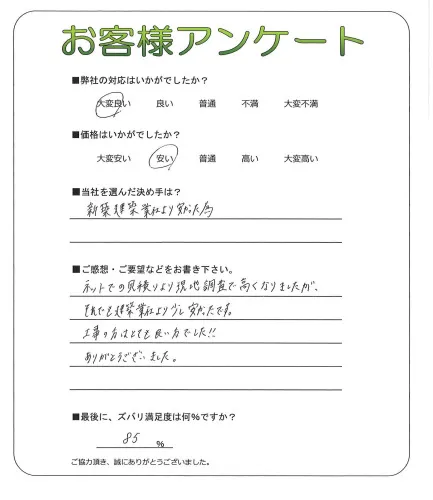 お客様アンケート
■弊社の対応はいかがでしたか？
大変良い 良い 普通 不満 大変不満
■価格はいかがでしたか？
大変安い 安い 普通 高い 大変高い
■当社を選んだ決め手は？
新築建築業社より安かった為
■ご感想・ご要望などをお書き下さい。
ネットでの見積りより現地調査で高くなりましたが、
それでも建築業社より少し安かったです。
工事の方はとても良い方でした!!
ありがとうございました。
■最後に、ズバリ満足度は何%ですか？
85 %
ご協力頂き、誠にありがとうございました。